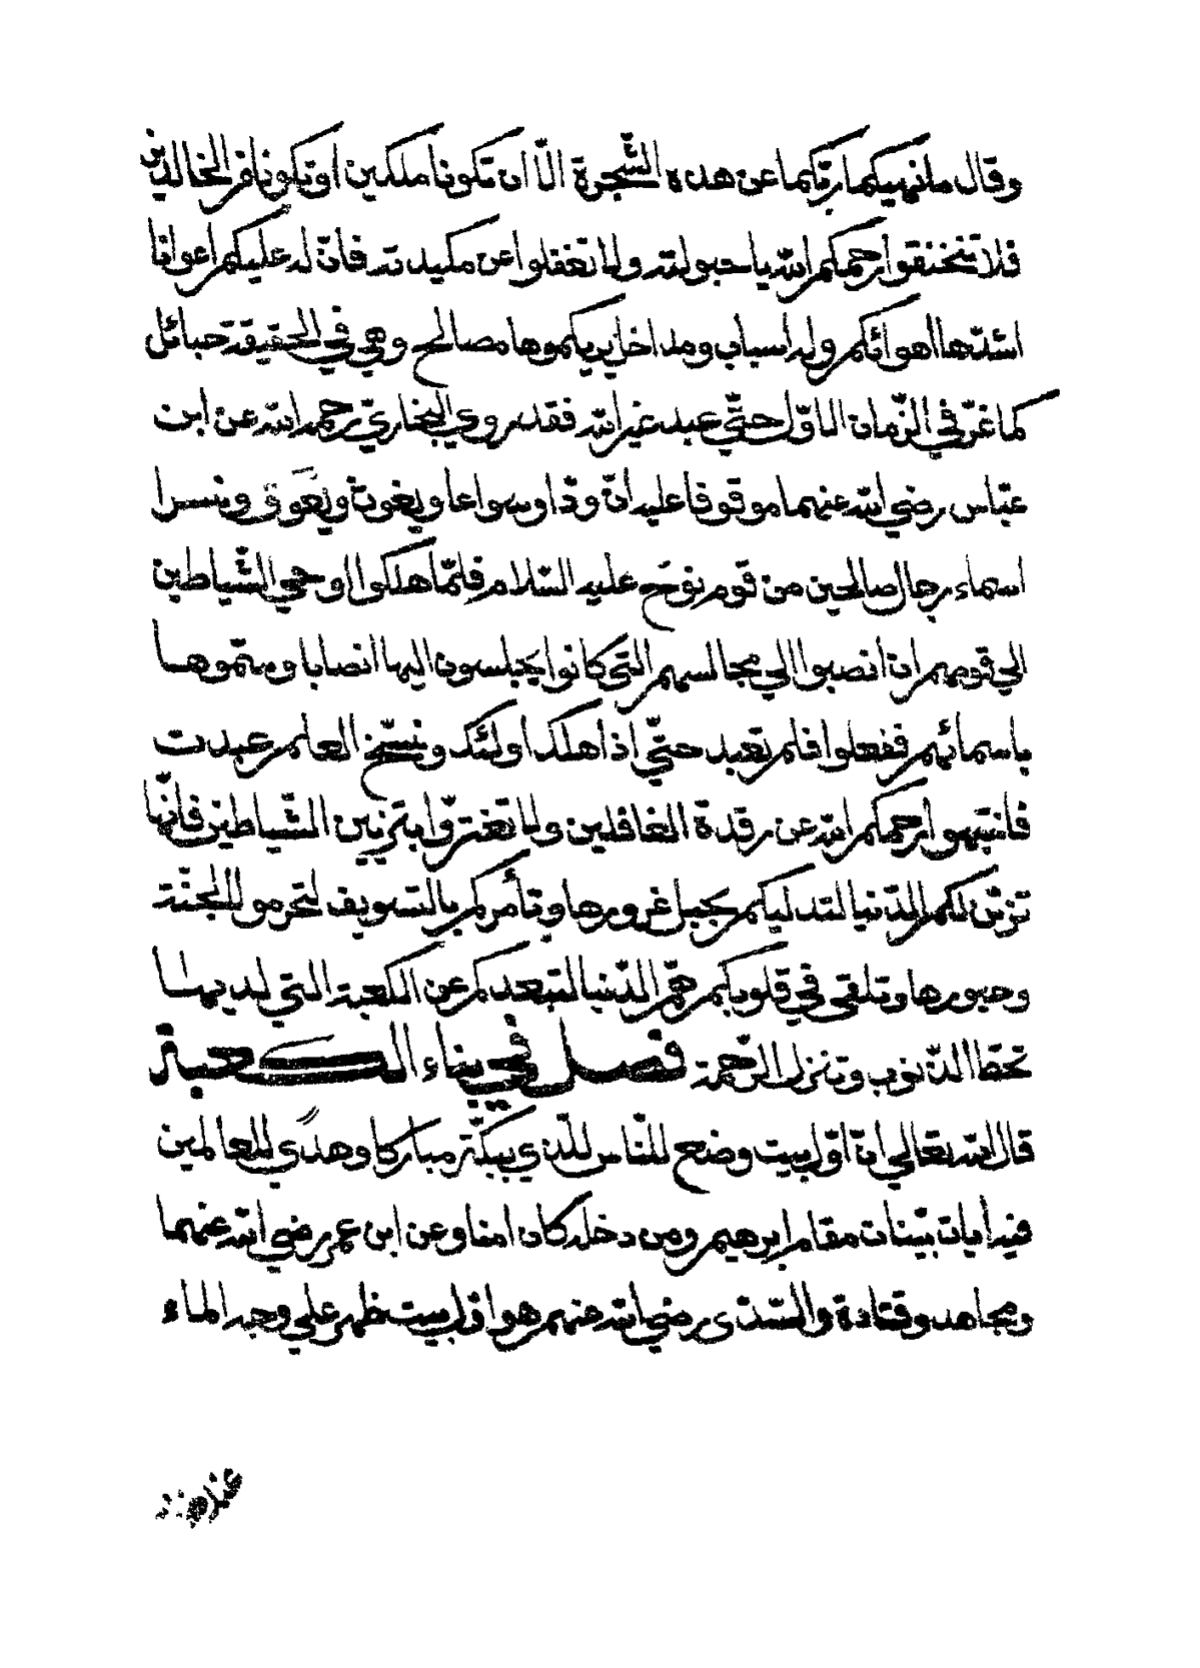 وقال ما نهيكما ربكما عن هذه الشّجرة الّا ان تكونا ملكين او تكونا من الخالدين
فلا تختنقوا رحمكم الله باحبولته ولا تغفلوا عن مكيدته فانّ له عليكم اعوانا
اشدّها اهوائكم وله اسباب ومداخل يريكموها مصالح وهي في الحقيقة حبائل
كما غرّ في الزّمان الاوّل حتّي عبد غير الله فقد روي البخاريّ رحمه الله عن ابن
عبّاس رضي الله عنهما موقوفا عليه انّ ودّا وسواعا ويغوث ويعوق ونسرا
اسماء رجال صالحين من قوم نوح عليه السّلام فلمّا هلكوا اوحي الشّياطين
الي قومهم ان انصبوا الي مجالسهم التي كانوا يجلسون اليها انصابا وسمّوها
باسمائهم ففعلوا فلم تعبد حتّي اذا هلك اولئك ونسّخ العلم عبدت
فانتبهوا رحمكم الله عن رقدة الغافلين ولا تغترّوا بتزيين الشّياطين فانّها
تزيّن لكم الدّنيا لتدليكم بحبل غرورها وتأمركم بالتسويف لتحرموا الجنّة
وحبورها وتلقي في قلوبكم همّ الدّنيا لتبعدكم عن الكعبة التي لديها
تحطّ الذّنوب وتنزل الرّحمة فصل في بناء الكعبة
قال الله تعالي انّ اوّل بيت وضع للنّاس للّذي ببكّة مباركا وهدًي للعالمين
فيه ايات بيّنات مقام ابرهيم ومن دخله كان امنا وعن ابن عمر رضي الله عنهما
ومجاهد وقتادة والسّدّي رضي الله عنهم هو اوّل بيت ظهر علي وجه الماء